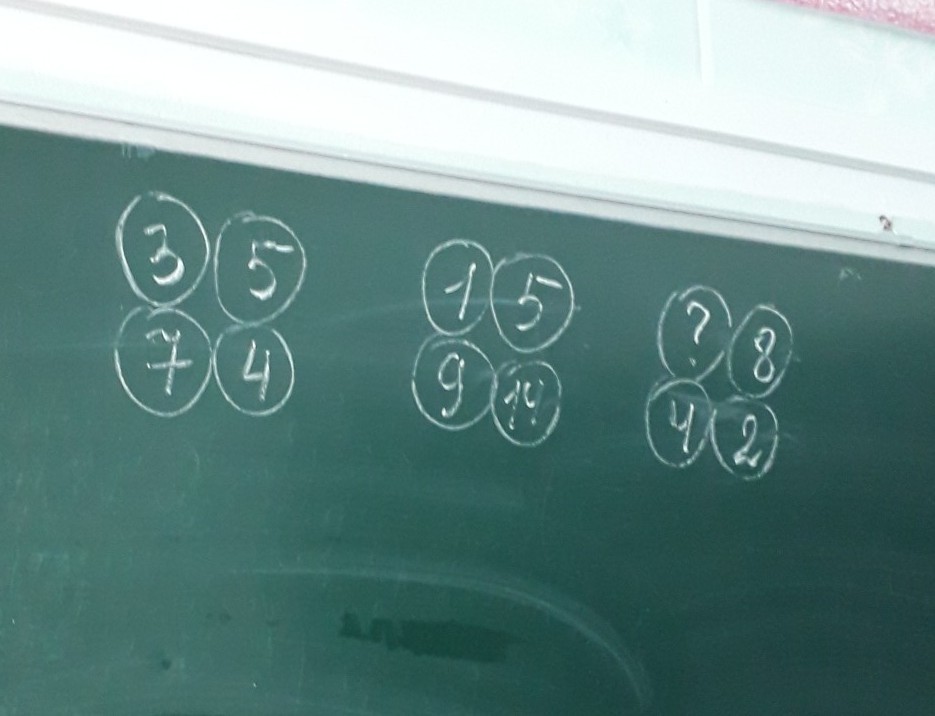 3 5
7 4
1 5
9 14
? 8
4 2